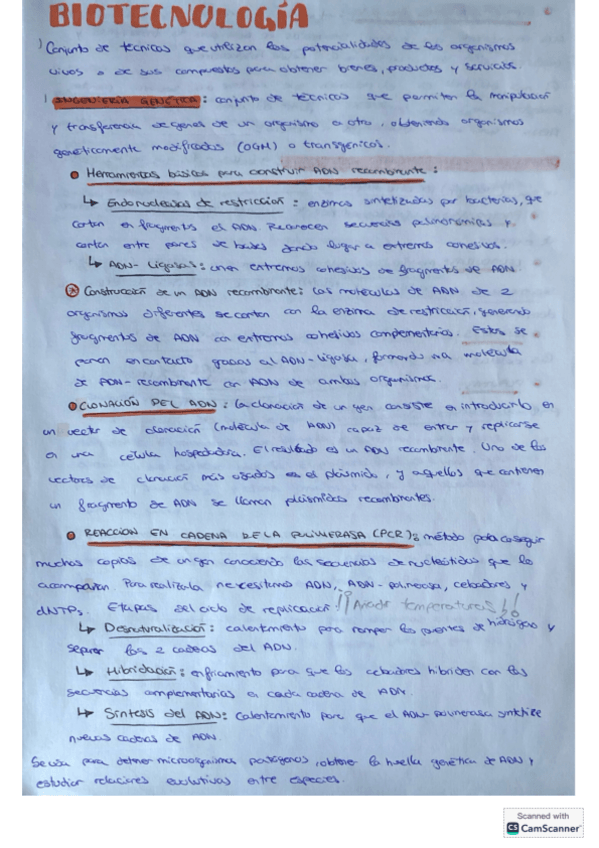 BIOTECNOLOGÍA
Conjunto de técnicas que utilizan las potencialidades de los organismos
vivos o de sus compuestos para obtener bienes, productos y servicios.
INGENIERÍA GENÉTICA: conjunto de técnicas que permiten la manipulación
y transferencia de genes de un organismo a otro, obteniendo organismos
genéticamente modificados (OGM) o transgénicos.
Herramientas básicas para construir ADN recombinante:
↳ Endonucleasas de restricción: enzimas sintetizadas por bacterias, que
cortan en fragmentos el ADN. Reconocen secuencias palindrómicas y
cortan entre pares de bases dando lugar a extremos cohesivos.
↳ ADN-Ligasas: unen extremos cohesivos de fragmentos de ADN
Construcción de un ADN recombinante: Las moléculas de ADN de 2
organismos diferentes se cortan con la enzima de restricción, generando
fragmentos de ADN con extremos cohesivos complementarios. Estos se
ponen en contacto gracias al ADN-ligasa, formando una molécula
de ADN-recombinante con ADN de ambos organismos.
CLONACIÓN DEL ADN: la clonación de un gen consiste en introducirlo en
un vector de clonación (molécula de ADN) capaz de entrar y replicarse
en una célula hospedadora. El resultado es un ADN recombinante. Uno de los
vectores de clonación más usados es el plásmido, y aquellos que contienen
un fragmento de ADN se llaman plásmidos recombinantes.
REACCIÓN EN CADENA DE LA POLIMERASA (PCR): método para conseguir
muchas copias de un gen conociendo las secuencias de nucleótidos que lo
acompañan. Para realizarla necesitamos ADN, ADN-polimerasa, cebadores y
dNTPs. Etapas del ciclo de replicación: ¡¡Añadir temperaturas!!
↳ Desnaturalización: calentamiento para romper los puentes de hidrógeno y
separar las 2 cadenas del ADN.
↳ Hibridación: enfriamiento para que los cebadores hibriden con las
secuencias complementarias en cada cadena de ADN.
↳ Síntesis del ADN: Calentamiento para que el ADN-polimerasa sintetice
nuevas cadenas de ADN.
Se usa para detener microorganismos patógenos, obtener la huella genética de ADN y
estudiar relaciones evolutivas entre especies.
Scanned with
CS CamScanner